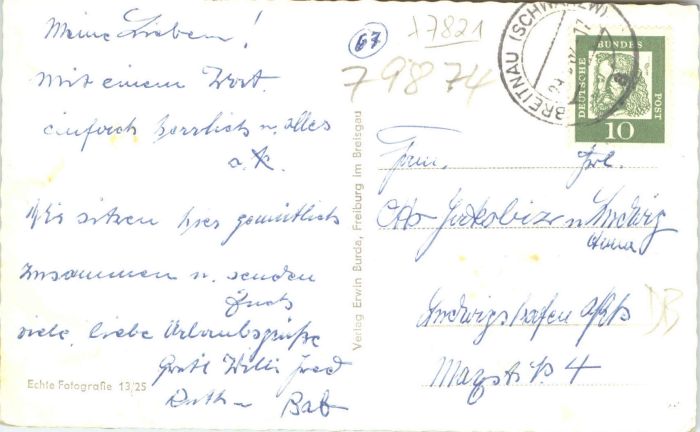 Meine Lieben!
Mit einem Wort
einfach herrlich u. alles
o.k.
Wir sitzen hier gemütlich
zusammen u. senden
Euch
viele, liebe Urlaubsgrüße
Gretl Willi
Ruth
Echte Fotografie 13/25
Verlag Erwin Burda, Freiburg im Breisgau
67
17821
79874
BREITNAU (SCHWARZW)
DEUTSCHE BUNDES POST
10
Fam. Frl.
Otto u. Ludwig
Anna
Ludwigshafen a/Rh
Maxstr. 4
DB